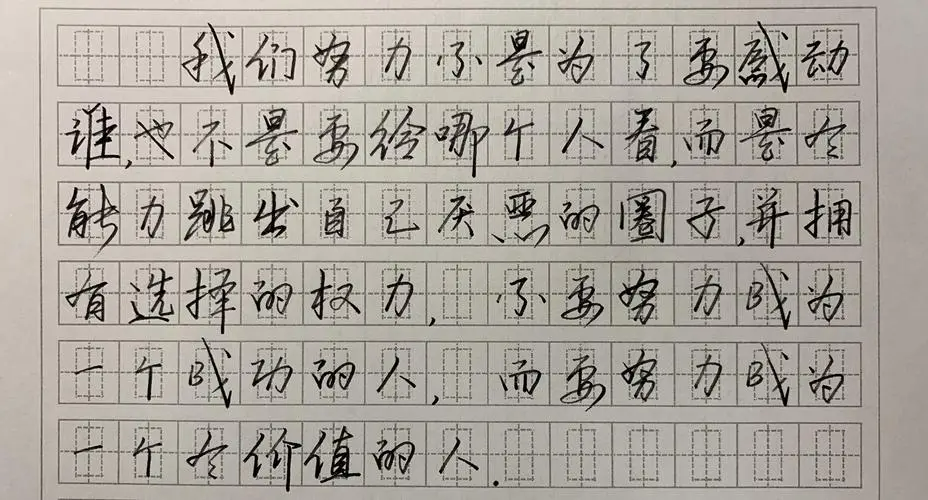 我们努力不是为了要感动
谁,也不是要给哪个人看,而是尽
能力跳出自己厌恶的圈子,并拥
有选择的权力,不要努力成为
一个成功的人,而要努力成为
一个尽价值的人.